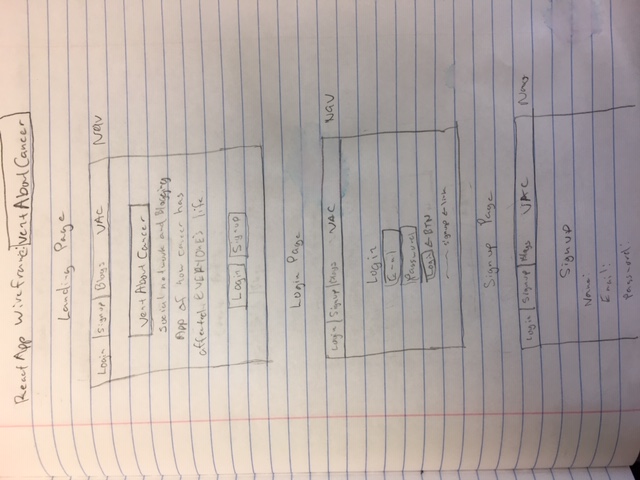 React App Wireframe: VentAboutCancer
Landing Page
Login Signup Blogs VAC Nav
VentAboutCancer
Social network and Blogging
App of how cancer has
affected EVERYONE's life
Login Signup
Login Page
Login Signup Blogs VAC Nav
Login
Email
Password
Login ← BTN
signup ← link
Signup Page
Login Signup Blogs VAC Nav
Signup
Name:
Email:
Password: